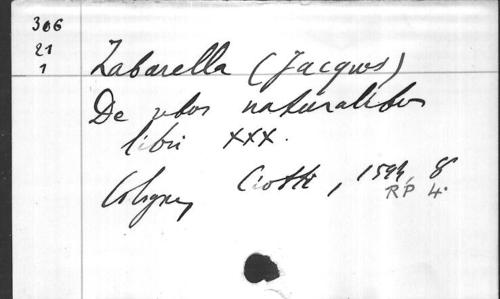 306
21
1
Zabarella (Jacques)
De rebus naturalibus
libri XXX.
Cologne, Ciotti, 1594, 8
RP 4.